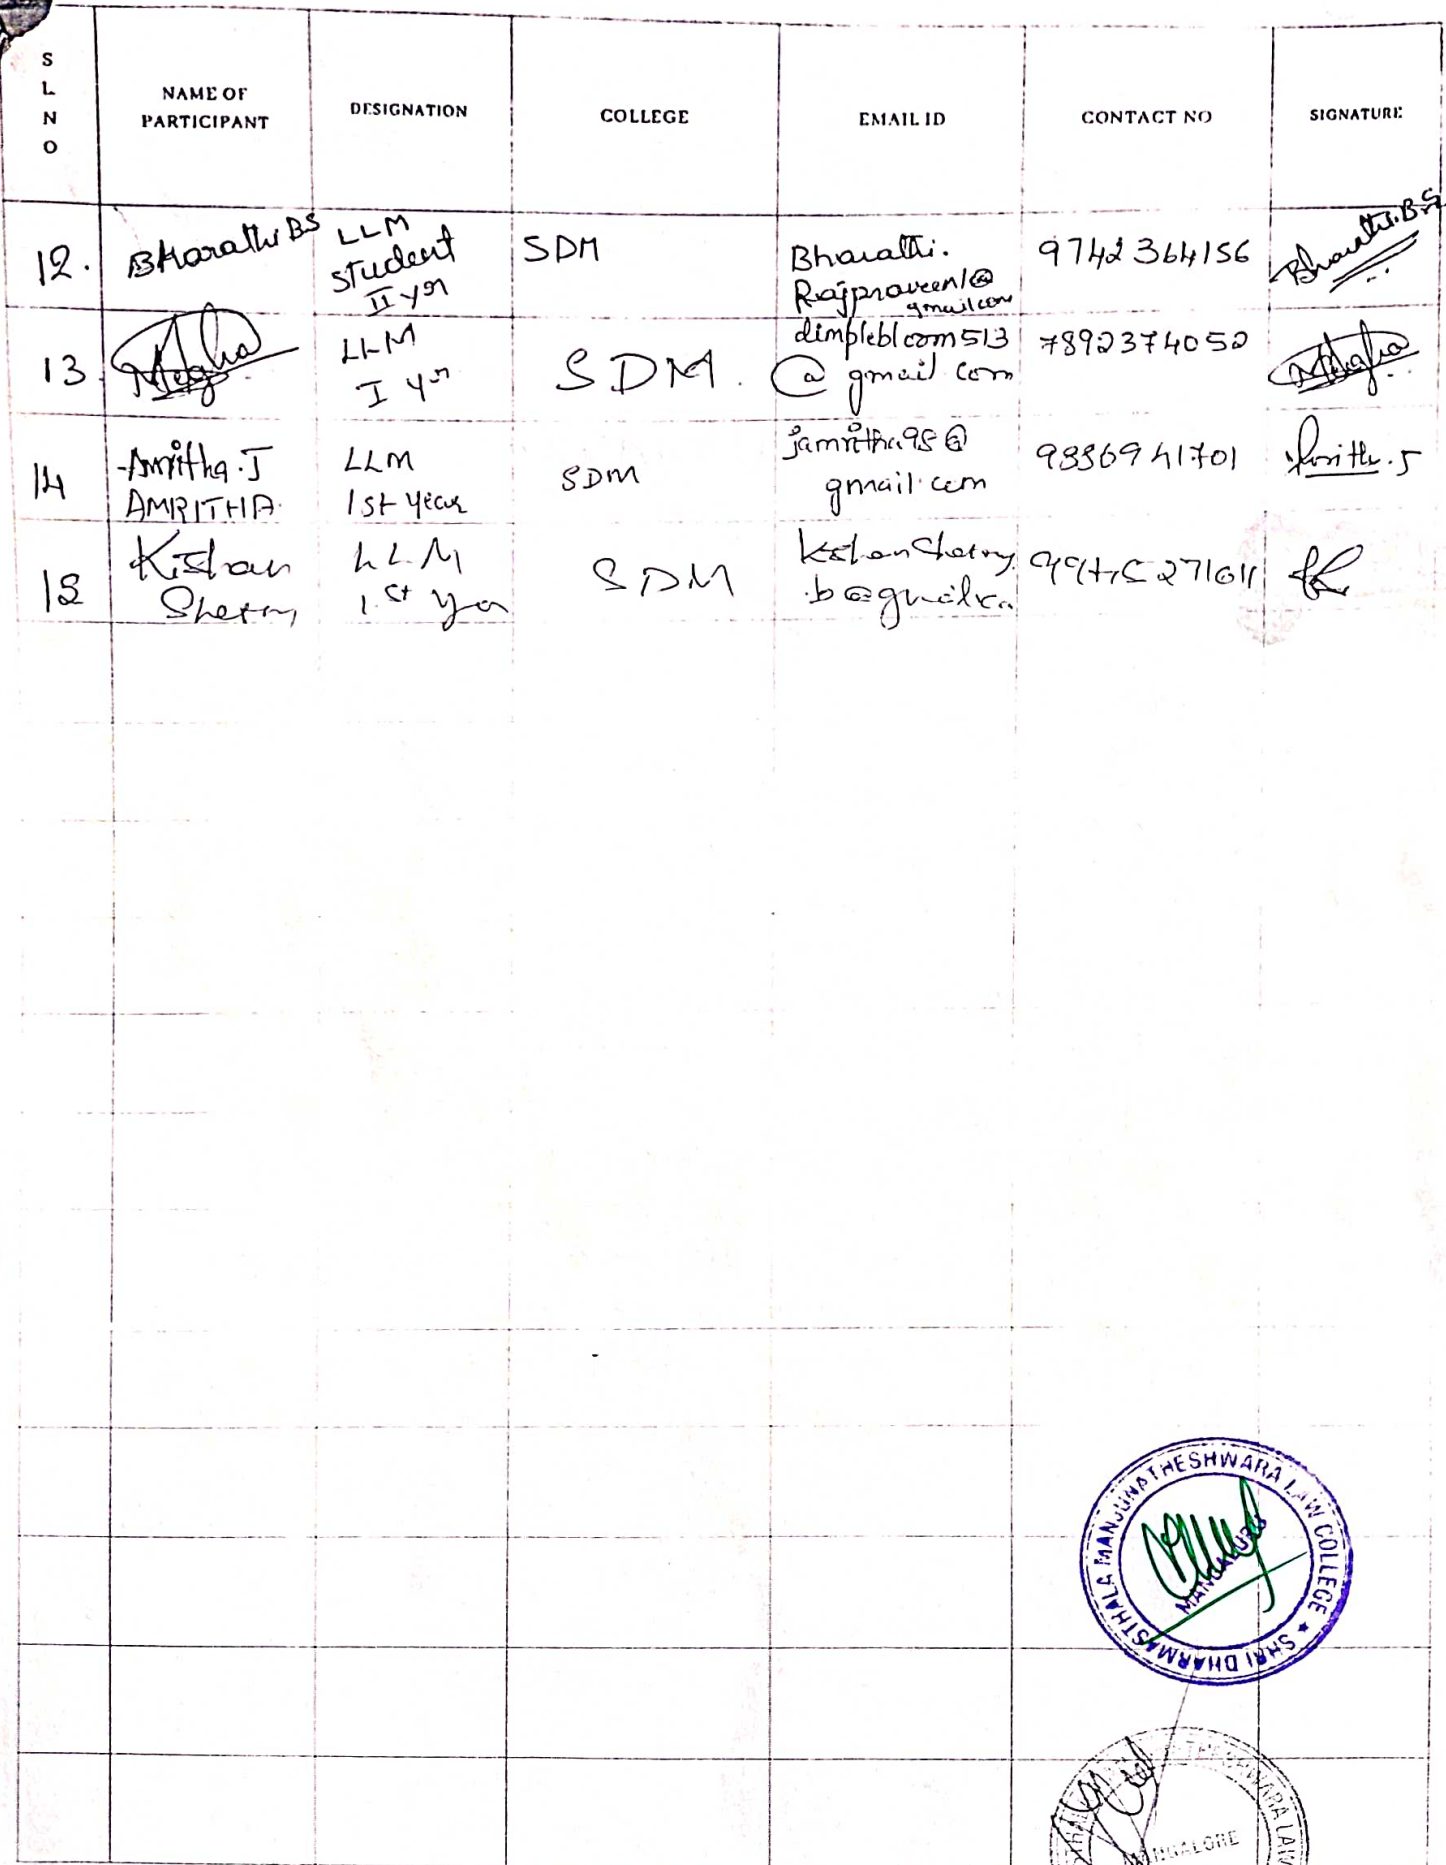 S
L
N
O
NAME OF
PARTICIPANT
DESIGNATION
COLLEGE
EMAIL ID
CONTACT NO
SIGNATURE
12.
Bharathi BS
LLM
student
II yr
SDM
Bharathi.
Rajpraveen1@
gmail.com
9742364156
Bharathi.B.S
13
Megha
LLM
I yr
SDM.
dimplebloom513
@gmail.com
7892374052
Megha
14
Amritha.J
AMRITHA
LLM
1st year
SDM
jamritha98@
gmail.com
9886941701
Kishan
Shetty
LLM
1st yr
SDM
SHRI DHARMASTHALA MANJUNATHESHWARA LAW COLLEGE ★
MANGALURU
MANGALORE